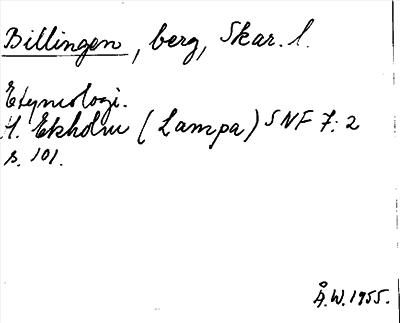 Billingen, berg, Skar. l.
Etymologi.
H. Ekholm (Lampa) SNF 7:2
s. 101.
Å.W. 1955.